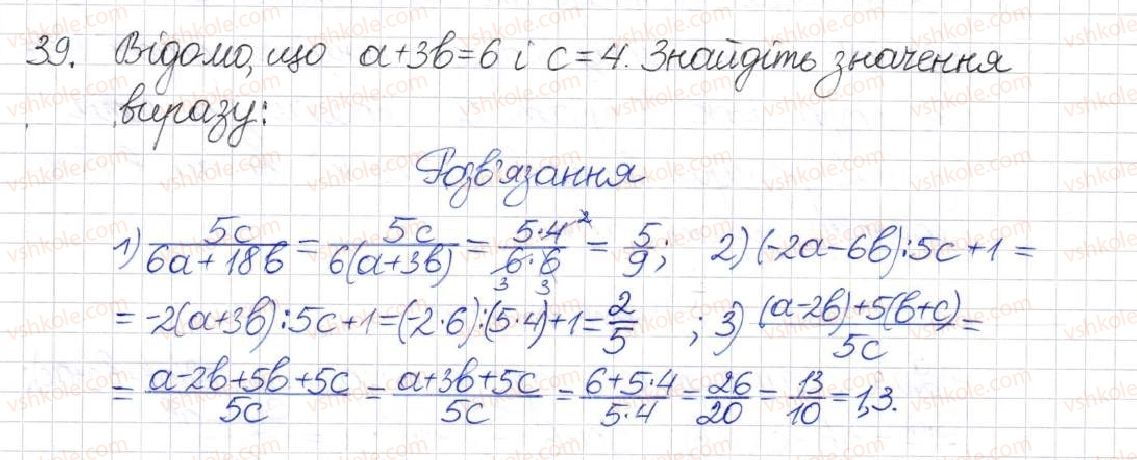 39. Відомо, що a+3b=6 і c=4. Знайдіть значення
виразу:
Розв'язання
1) 5c/(6a+18b) = 5c/(6(a+3b)) = 5·4 2/(6·6 3 3) = 5/9; 2) (-2a-6b):5c+1=
=-2(a+3b):5c+1=(-2·6):(5·4)+1=2/5 ; 3) ((a-2b)+5(b+c))/5c=
= (a-2b+5b+5c)/5c = (a+3b+5c)/5c = (6+5·4)/(5·4) = 26/20 = 13/10 = 1,3.